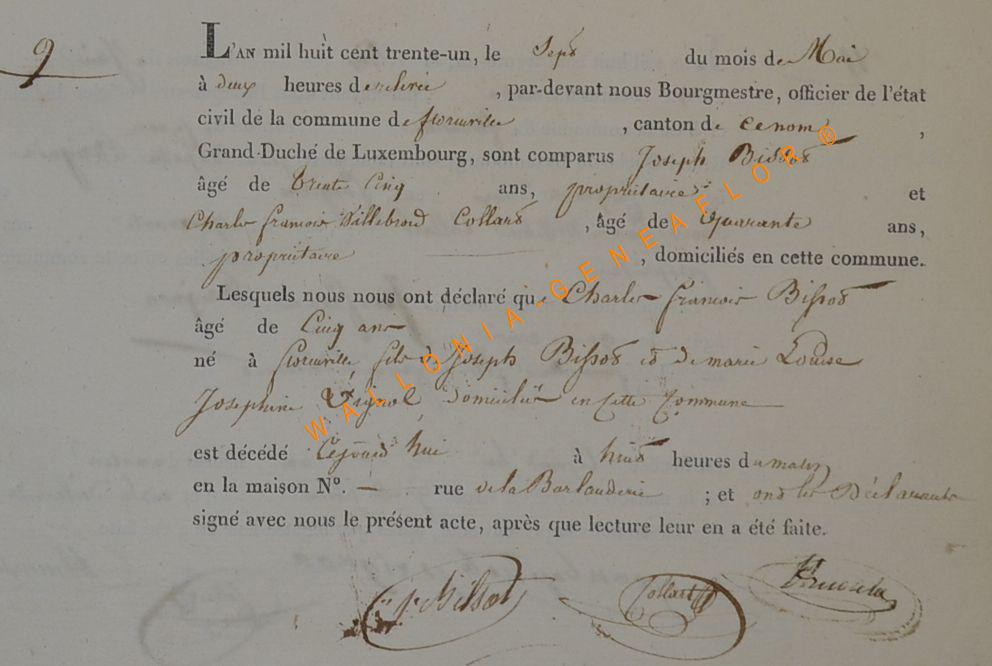 9
L'AN mil huit cent trente-un, le Sept du mois de Mai
à deux heures de relevée, par-devant nous Bourgmestre, officier de l'état
civil de la commune de florenville, canton de
Grand-Duché de Luxembourg, sont comparus Joseph Bissot
âgé de trente Cinq ans, propriétaire et
Charles francois Willebrord Collard, âgé de Quarante ans,
propriétaire, domiciliés en cette commune.
Lesquels nous nous ont déclaré que Charles francois Bissot
âgé de Cinq ans
né à florenville fils de Joseph Bissot et De marie Louise
Josephine domiciliés en cette Commune
est décédé Cejourd'hui à huit heures du matin
en la maison N°. — rue de la Barlauderie ; et ont les Déclarants
signé avec nous le présent acte, après que lecture leur en a été faite.
J. Bissot Collard
WALLONIA-GENEAFLOR ©